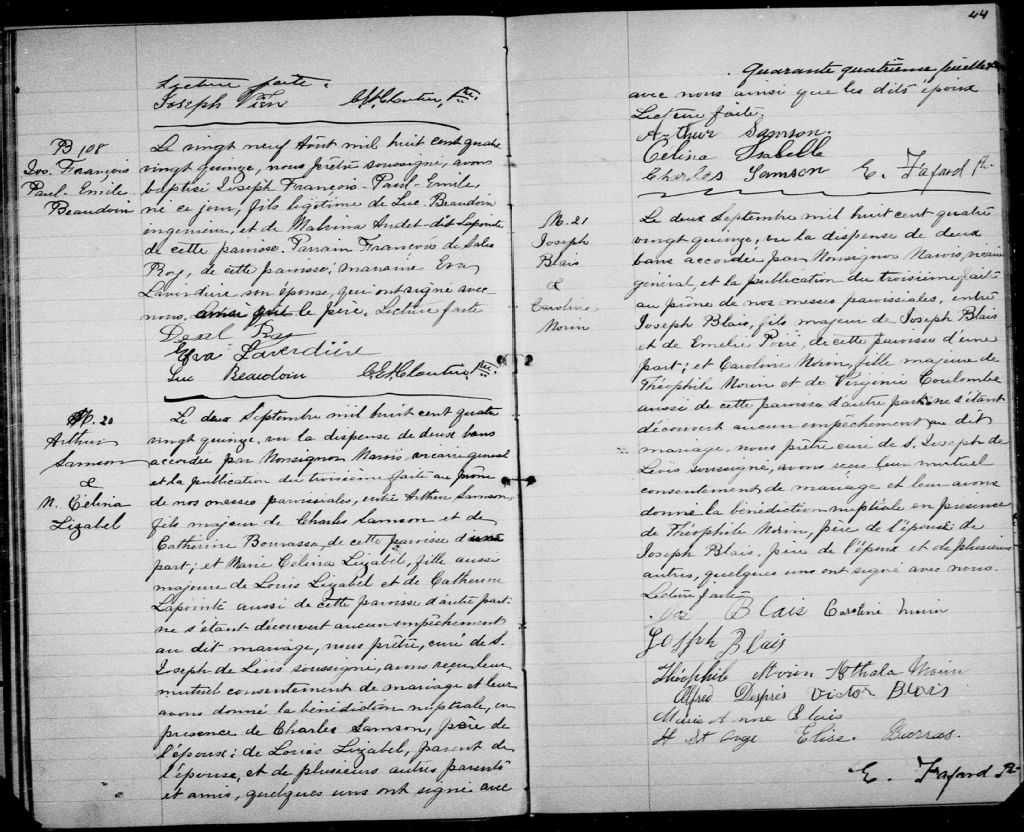 Lecture faite.
Joseph
Ptre.
B 108
Jos. François
Paul-Emile
Beaudoin
Le vingt neuf Août mil huit cent quatre
vingt quinze, nous prêtre soussigné, avons
baptisé Joseph François-Paul-Emile,
né ce jour, fils légitime de Luc Beaudoin
ingénieur, et de Malvina Audet-dit-Lapointe
de cette paroisse. Parrain François de Sales
Roy, de cette paroisse; marraine Eva
Laverdière son épouse, qui ont signé avec
nous, ainsi que le père. Lecture faite
Roy
Eva Laverdière
Luc Beaudoin Ptre.
M. 20
Arthur
Samson
&
M. Célina
Lizabel
Le deux Septembre mil huit cent quatre
vingt quinze, vu la dispense de deux bans
accordée par Monsignor Marois, vicaire général
et la publication du troisième faite au prône
de nos messes paroissiales, entre Arthur Samson,
fils majeur de Charles Samson et de
Catherine Bourassa, de cette paroisse d'une
part; et Marie Célina Lizabel, fille aussi
majeure de Louis Lizabel et de Catherine
Lapointe aussi de cette paroisse d'autre part:
ne s'étant découvert aucun empêchement
au dit mariage, nous prêtre, curé de S.
Joseph de Lévis soussigné, avons reçu leur
mutuel consentement de mariage et leur
avons donné la bénédiction nuptiale, en
présence de Charles Samson, père de
l'époux; de Louis Lizabel, parent de
l'épouse, et de plusieurs autres parents
et amis, quelques uns ont signé avec
44
Quarante quatrième feuillet
avec nous ainsi que les dits époux
Lecture faite
Arthur Samson.
Celina Isabelle
Charles Samson E. Fafard Ptr
M. 21
Joseph
Blais
&
Caroline
Morin
Le deux Septembre mil huit cent quatre
vingt quinze, vu la dispense de deux
bans accordée par Monsignor Marois, vicaire
général, et la publication du troisième faite
au prône de nos messes paroissiales, entre
Joseph Blais, fils majeur de Joseph Blais
et de Emélie Poiré, de cette paroisse d'une
part; et Caroline Morin, fille majeure de
Théophile Morin et de Virginie Coulombe
aussi de cette paroisse d'autre part: ne s'étant
découvert aucun empêchement au dit
mariage, nous prêtre curé de S. Joseph de
Lévis soussigné, avons reçu leur mutuel
consentement de mariage et leur avons
donné la bénédiction nuptiale en présence
de Théophile Morin, père de l'épouse de
Joseph Blais, père de l'époux et de plusieurs
autres, quelques uns ont signé avec nous.
Lecture faite
Jos Blais Caroline Morin
Joseph Blais
Théophile Morin Morin
Alfred Després Victor Blais
Marie Anne Blais
H St Ange Elise.
E. Fafard Ptr